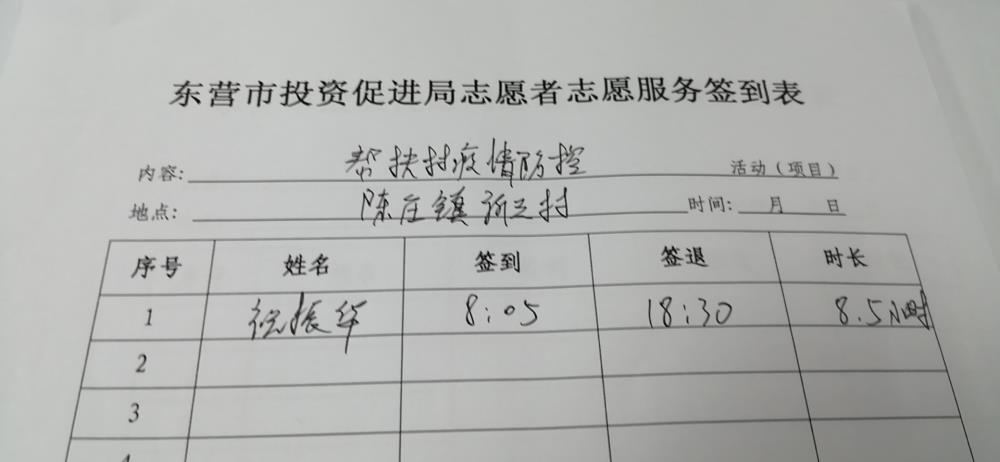 东营市投资促进局志愿者志愿服务签到表
内容: 帮扶村疫情防控 活动（项目）
地点: 陈庄镇 村 时间: 月 日
序号 姓名 签到 签退 时长
1 祝振华 8:05 18:30 8.5小时
2
3